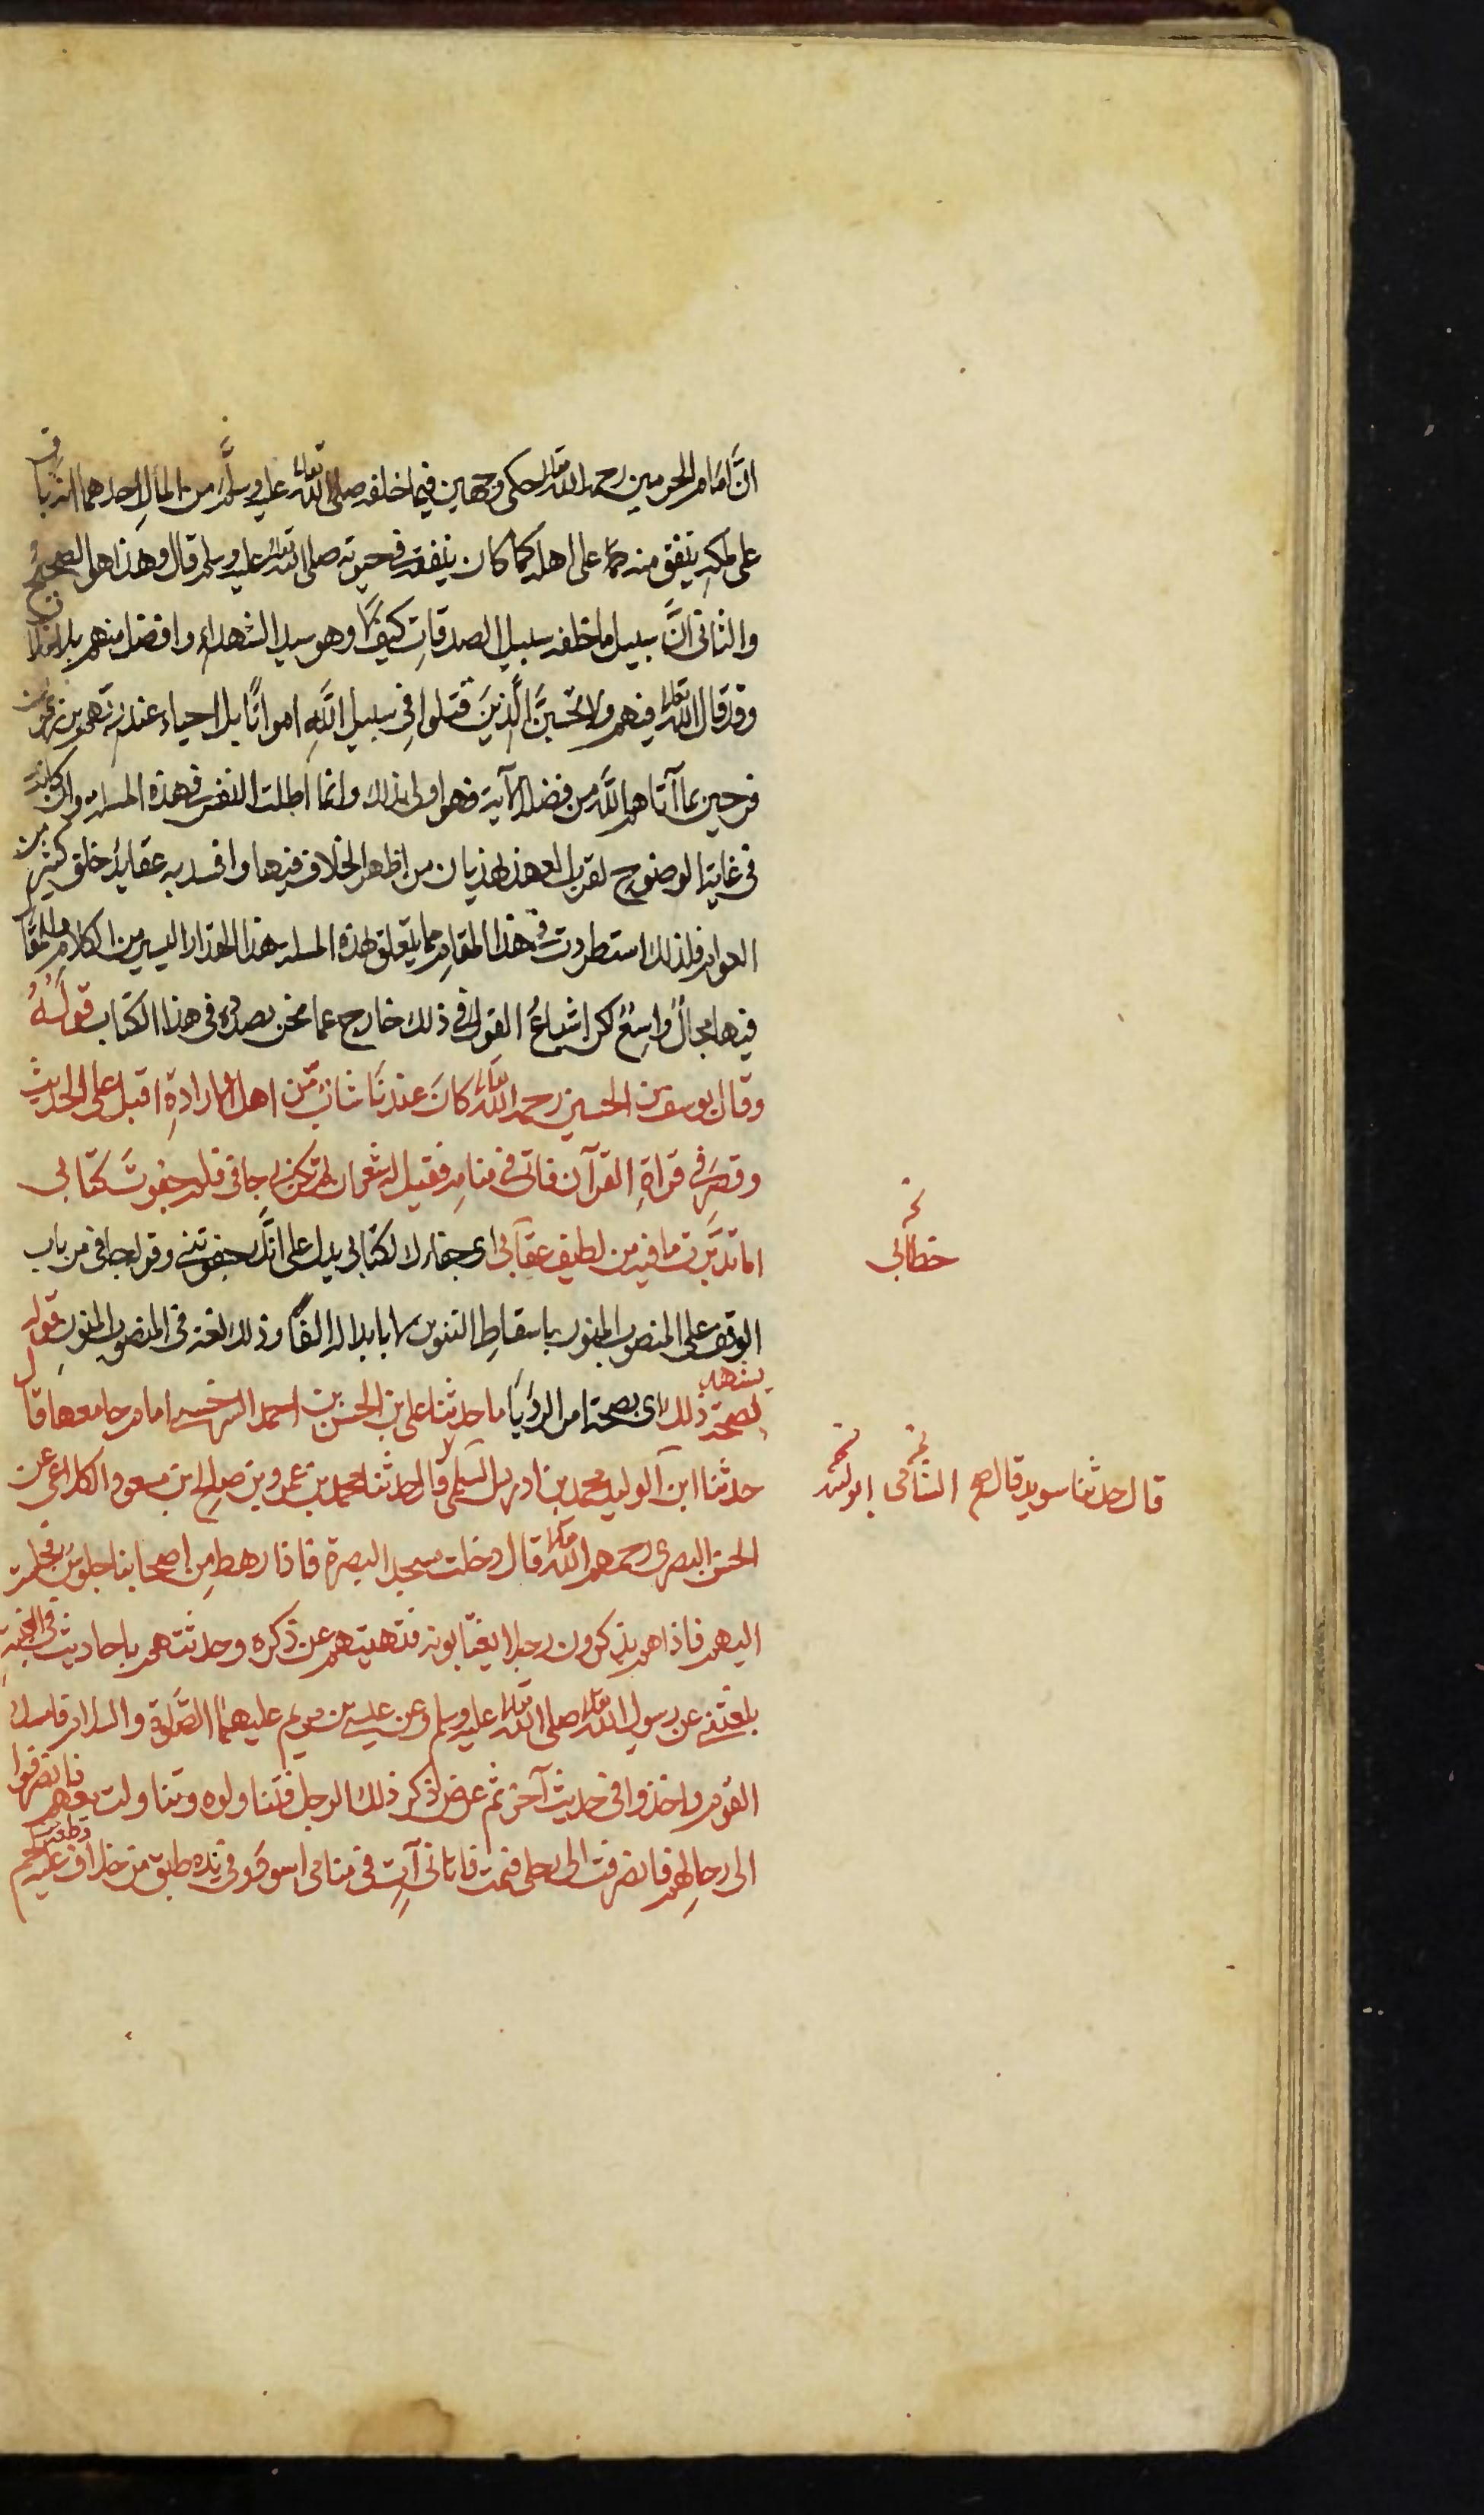 انَّ امام الحرمين رحمه الله تعالى حكى وجهين فيما خلفه صلى الله تعالى عليه وسلَّم من المال احدهما انه باق
على ملكه ينفق منه على اهله كما كان ينفقه في حيوته صلى الله تعالى عليه وسلم قال وهذا هو الصحيح
والثاني انَّ سبيل ما خلفه سبيل الصدقاتِ كيف لا وهو سيد الشهداء وافضل منهم بلا خلاف
وقد قال الله تعالى فيهم ولا تحسبَنَّ الَّذينَ قتلوا في سبيل اللَّهِ امواتًا بل احياء عند ربّهم يرزقون
فرحين بما آتاهم اللَّه من فضله الآية فهو اولى بذلك وانما اطلت النفس في هذه المسلة وان كانت
في غاية الوضوح لغرابة هذيان من اظهر الخلاف فيها وافسد به عقايد خلق كثير من
العوام فلذلك استطردت في هذا المقام مما يتعلق بهذه المسلة هذا المقدار اليسير من الكلام وللمقال
فيها مجالٌ واسعٌ لكن اشباعُ القول في ذلك خارج عما نحن بصدده في هذا الكتاب قولُهُ
وقال يوسف بن الحسين رحمه الله تعالى كانَ عندنَا شابٌ من اهل الارادةِ اقبل على الحديث
وقصر في قراةِ القرآن فاتى في منامه فقيل له شعر ان لم تكن بي جافي فلم جفوتَ كتابي
اما تدبَّرت ما فيه من لطيف عتابي اي جفاءك لكتابي يدل على انَّك جفوتني وقوله جافي من باب
الوقف على المنصوب المنون باسقاطِ التنوين لا بابداله الفًا وذلك لغة في المنصوب المنونِ قوله
يشهد لصحة ذلك اي بصحة امر الرؤيَا ما حدثنا علي بن الحسن بن احمد السرخسي امام جامعها قال
حدثنا ابن الوليد محمد بن ادريس السلمي قال حدثنا محمد بن عمرو بن صالح ابن مسعود الكلاعي عن
الحسن البصري رحمهم الله تعالى قال دخلت مسجد البصرة فاذا رهط مِن اصحابنا جلوسٌ فجلست
اليهم فاذا هم يذكرون رجلا يغتابونه فنهيتهم عن ذكره وحدثتهم باحاديث في الغيبةِ
بلغتني عن رسول الله تعالى صلى الله تعالى عليه وسلم وعن عيسى بن مريم عليهما الصَّلوة والسلام فامسك
القوم واخذوا في حديث آخر ثم عرض ذكر ذلك الرجل فتناولوه وتناولت معهم فانصرفوا
الى رحالِهم فانصرفت الى رحلي فنمت فاتاني آتٍ في منامي اسود وفي يده طبق من خلاف عليه قطعة لحم
نخ
خطابي
نخ
قال حدثنا سويد قال